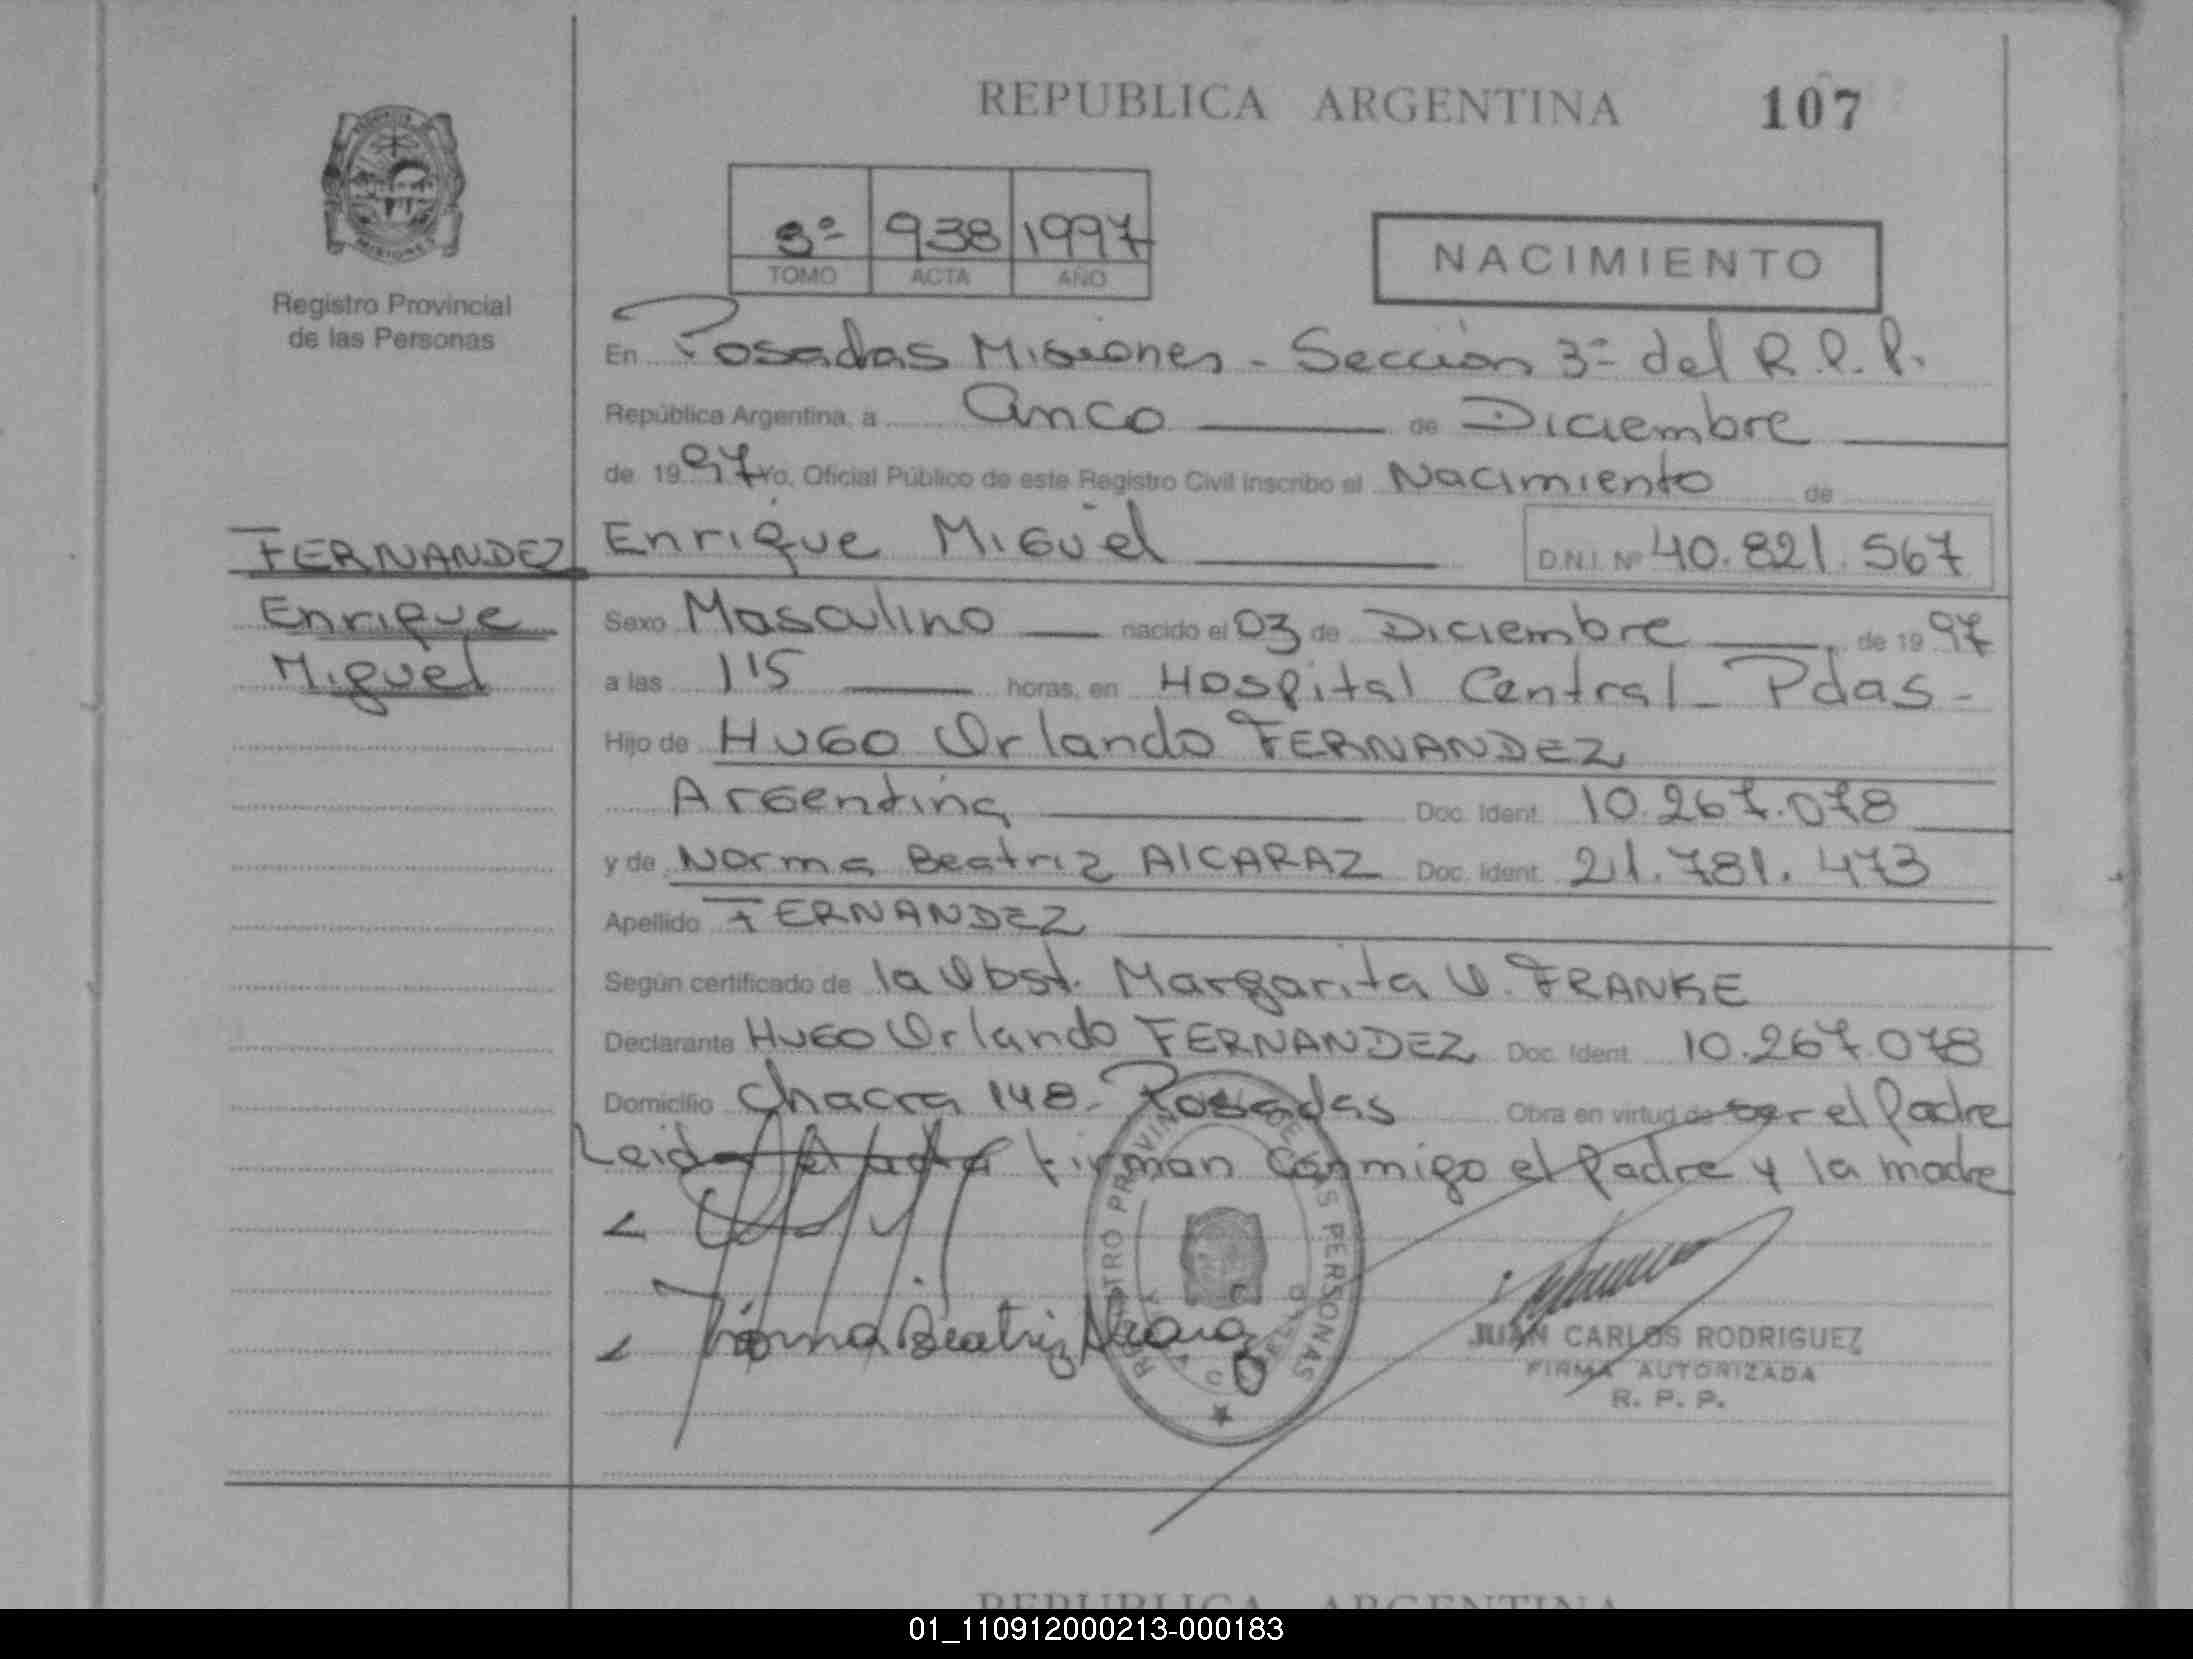 REPUBLICA ARGENTINA 107
3º 938 1997
TOMO ACTA AÑO
NACIMIENTO
Registro Provincial
de las Personas
En Posadas Misiones - Sección 3ª del R.P.P.
República Argentina, a Cinco de Diciembre
de 1997 Yo, Oficial Público de este Registro Civil inscribo el Nacimiento de
FERNANDEZ
Enrique
Miguel
Enrique Miguel D.N.I. Nº 40.821.567
Sexo Masculino nacido el 03 de Diciembre de 1997
a las 1 15 horas, en Hospital Central - Pdas -
Hijo de Hugo Orlando FERNANDEZ
Argentina Doc. Ident. 10.267.078
y de Norma Beatriz AlCARAZ Doc. Ident. 21.781.473
Apellido FERNANDEZ
Según certificado de la Obst. Margarita O. FRANKE
Declarante Hugo Orlando FERNANDEZ Doc. Ident. 10.267.078
Domicilio Chacra 148 - Posadas Obra en virtud de ser el Padre
Leida el acta firman conmigo el Padre y la madre
Norma Beatriz Alcaraz
REGISTRO PROVINCIAL DE LAS PERSONAS
JUAN CARLOS RODRIGUEZ
FIRMA AUTORIZADA
R. P. P.
REPUBLICA ARGENTINA
01_110912000213-000183